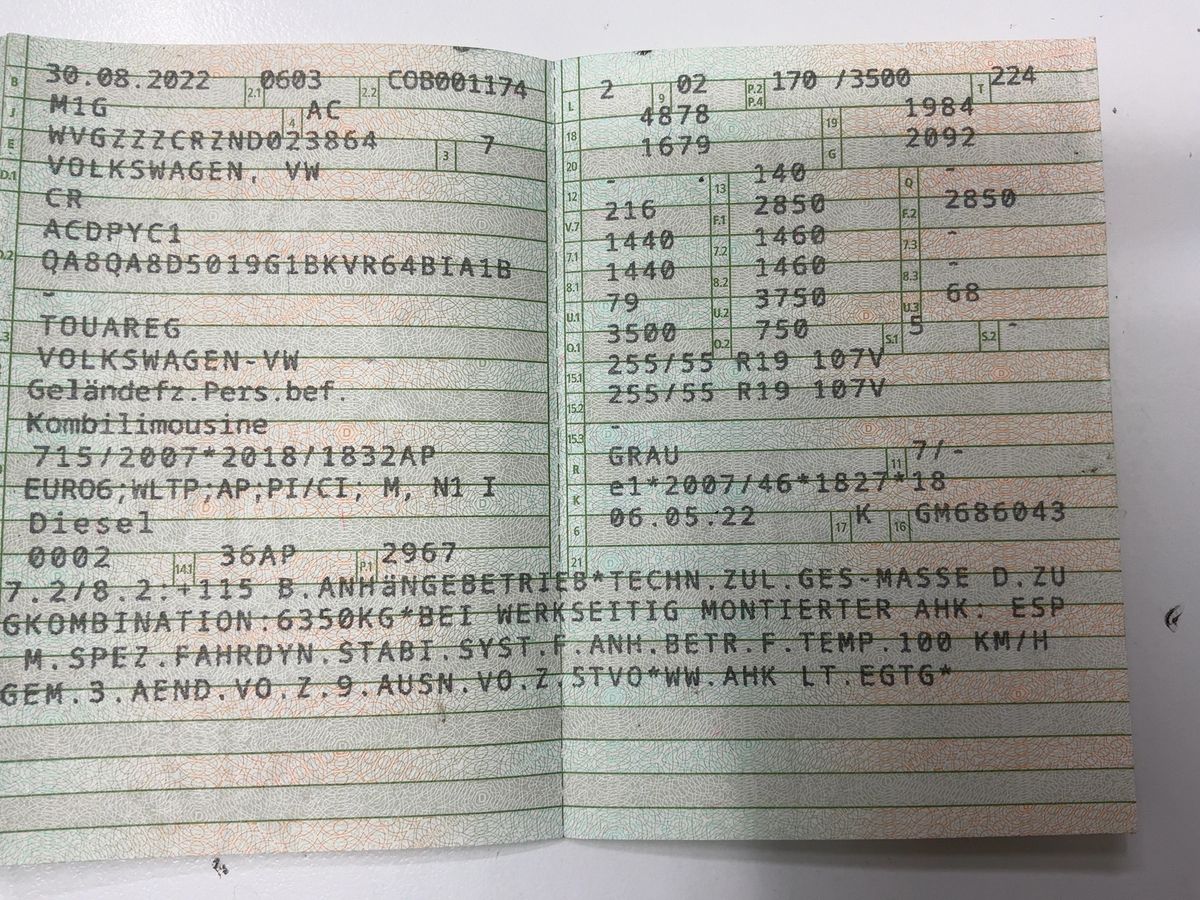 B 30.08.2022 2.1 0603 2.2 COB001174
J M1G 4 AC
E WVGZZZCRZND023864 3 7
D.1 VOLKSWAGEN, VW
CR
ACDPYC1
D.2 QA8QA8D5019G1BKVR64BIA1B
-
.3 TOUAREG
VOLKSWAGEN-VW
Geländefz.Pers.bef.
Kombilimousine
715/2007*2018/1832AP
EURO6;WLTP;AP;PI/CI; M, N1 I
Diesel
0002 14.1 36AP P.1 2967
L 2 9 02 P.2 P.4 170 /3500 T 224
18 4878 19 1984
20 1679 G 2092
12 - 13 140 Q -
V.7 216 F.1 2850 F.2 2850
7.1 1440 7.2 1460 7.3 -
8.1 1440 8.2 1460 8.3 -
U.1 79 U.2 3750 U.3 68
O.1 3500 O.2 750 S.1 5 S.2 -
15.1 255/55 R19 107V
15.2 255/55 R19 107V
15.3 -
R GRAU 11 7/-
K e1*2007/46*1827*18
6 06.05.22 17 K 16 GM686043
21
7.2/8.2:+115 B.ANHäNGEBETRIEB*TECHN.ZUL.GES-MASSE D.ZU
GKOMBINATION:6350KG*BEI WERKSEITIG MONTIERTER AHK: ESP
M.SPEZ.FAHRDYN.STABI.SYST.F.ANH.BETR.F.TEMP.100 KM/H
GEM.3.AEND.VO.Z.9.AUSN.VO.Z.STVO*WW.AHK LT.EGTG*